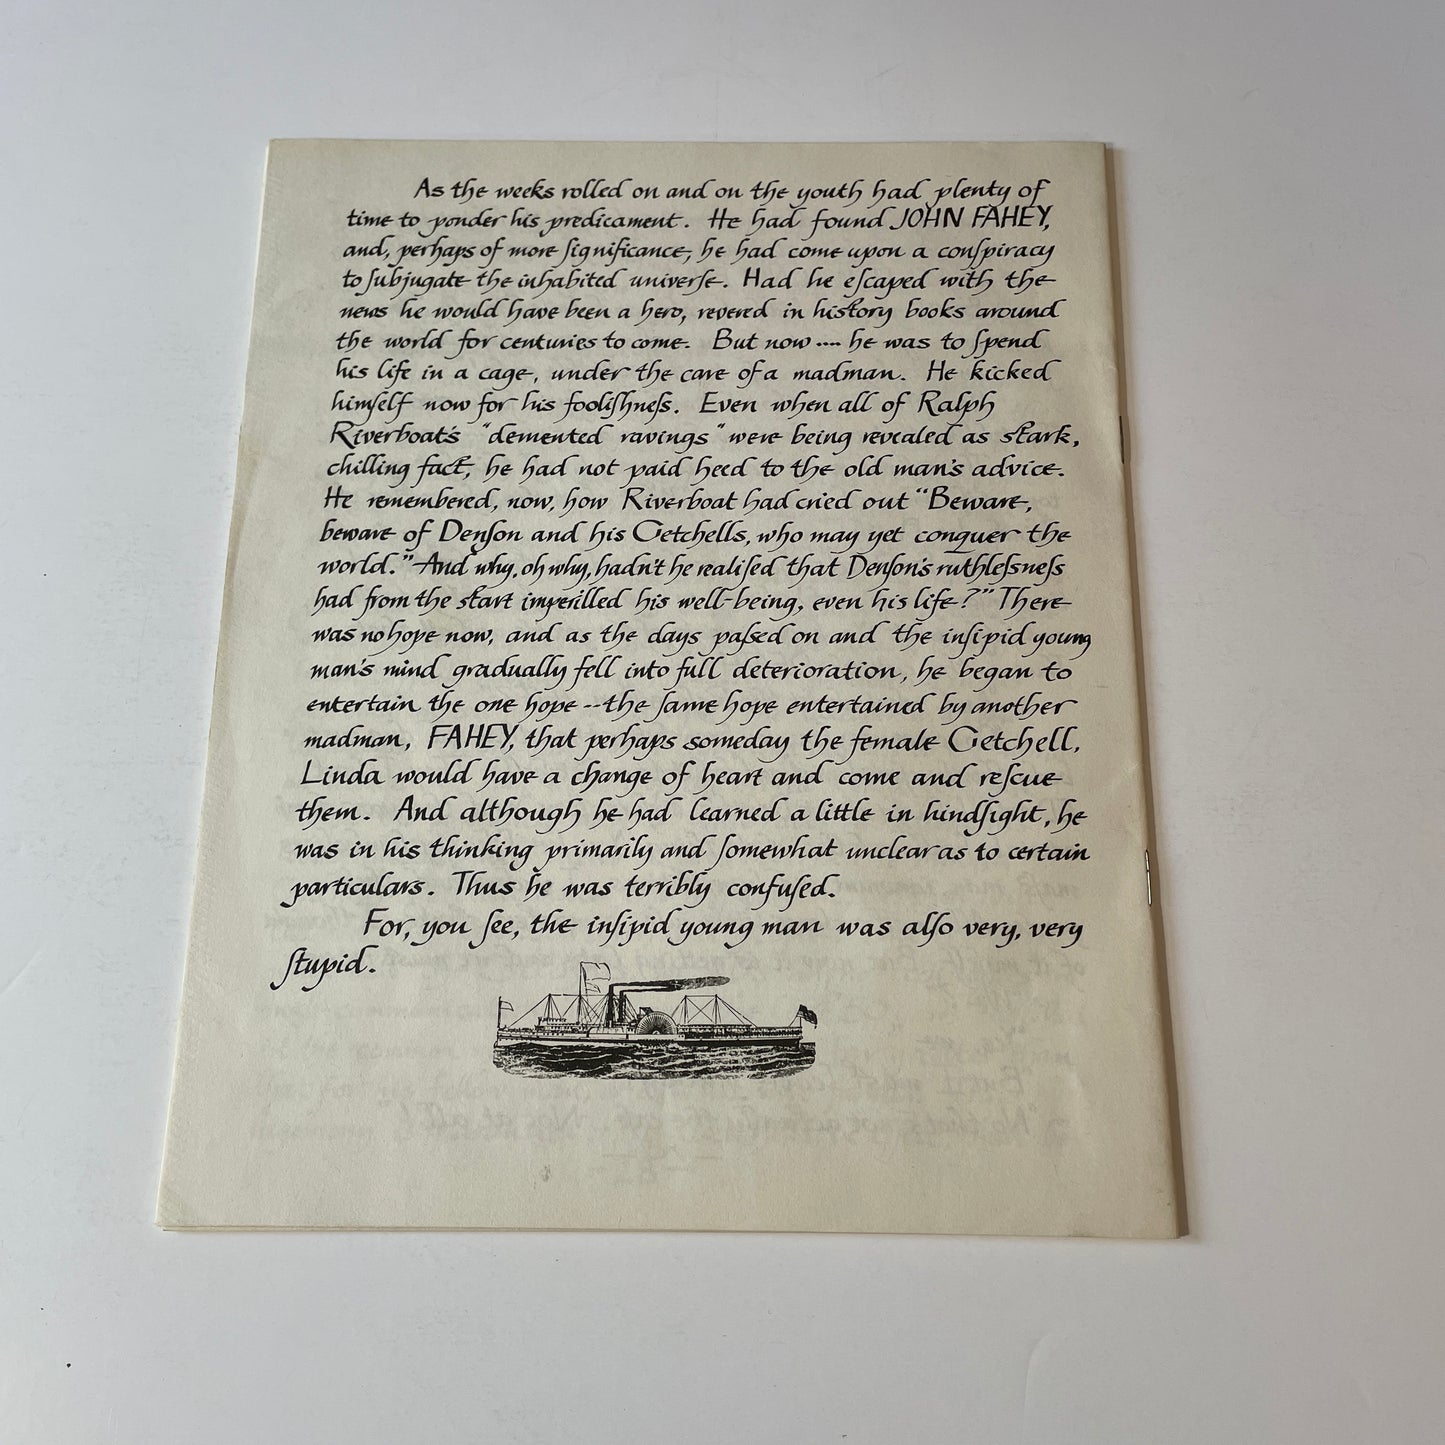 As the weeks rolled on and on the youth had plenty of
time to ponder his predicament. He had found JOHN FAHEY,
and, perhaps of more ſignificance, he had come upon a conſpiracy
to ſubjugate the inhabited univerſe. Had he eſcaped with the
news he would have been a hero, revered in history books around
the world for centuries to come. But now .... he was to ſpend
his life in a cage, under the care of a madman. He kicked
himſelf now for his fooliſhneſs. Even when all of Ralph
Riverboat's "demented ravings" were being revealed as stark,
chilling fact, he had not paid heed to the old man's advice.
He remembered, now, how Riverboat had cried out "Beware,
beware of Denſon and his Getchells, who may yet conquer the
world." And why, oh why, hadn't he realiſed that Denſon's ruthleſsneſs
had from the start imperilled his well-being, even his life?" There
was no hope now, and as the days paſsed on and the inſipid young
man's mind gradually fell into full deterioration, he began to
entertain the one hope -- the ſame hope entertained by another
madman, FAHEY, that perhaps someday the female Getchell,
Linda would have a change of heart and come and reſcue
them. And although he had learned a little in hindſight, he
was in his thinking primarily and ſomewhat unclear as to certain
particulars. Thus he was terribly confuſed.
For, you ſee, the inſipid young man was alſo very, very
ſtupid.